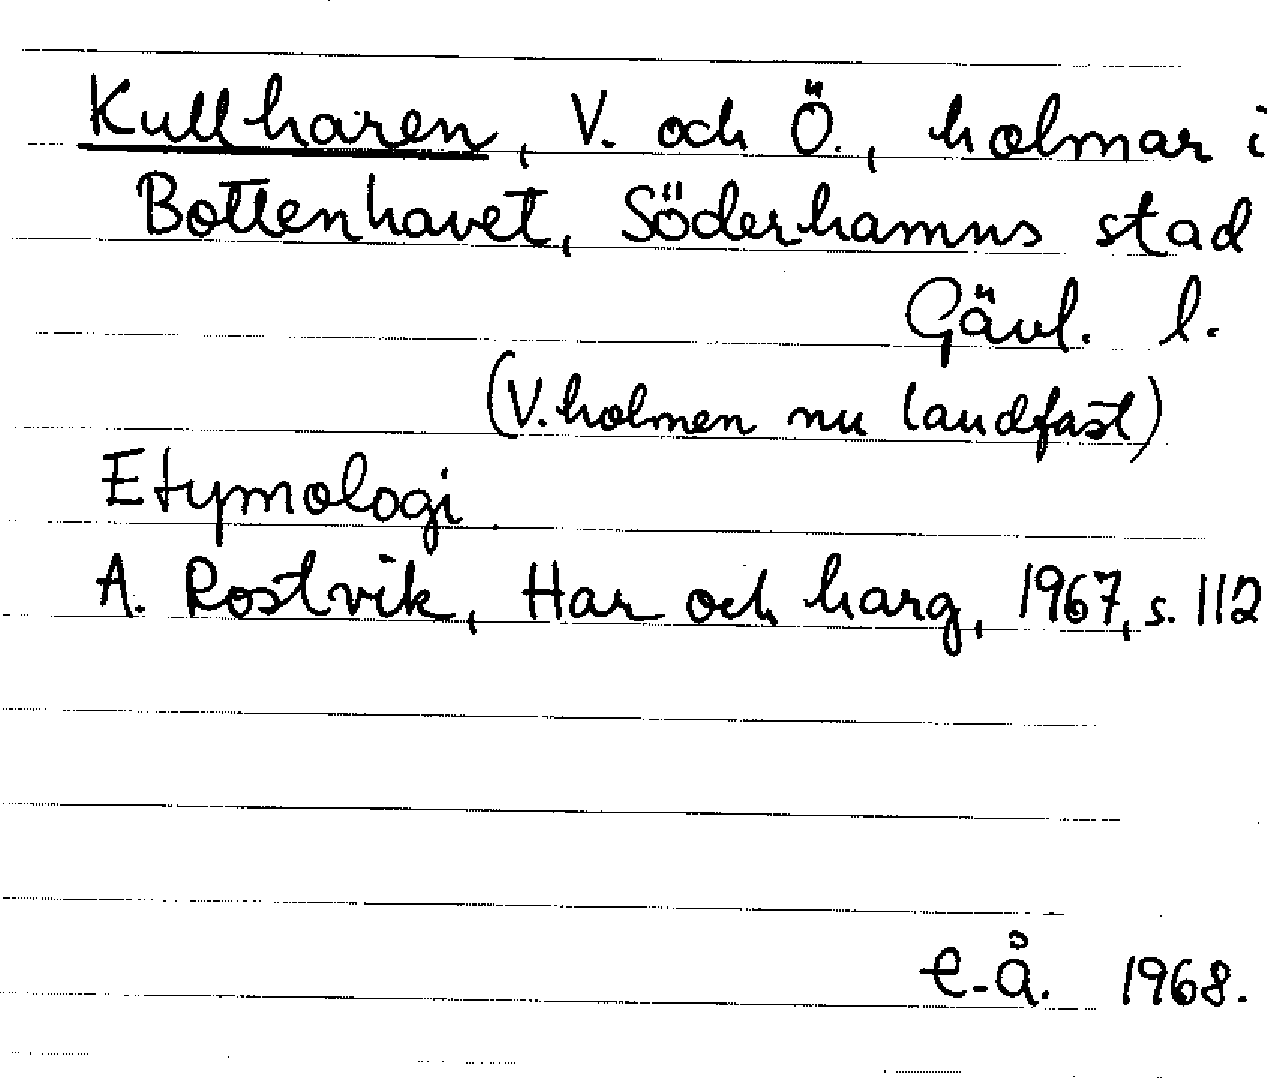 Kullharen, V. och Ö., holmar i
Bottenhavet, Söderhamns stad
Gävl. l.
(V. holmen nu landfast)
Etymologi
A. Rostvik, Har och harg, 1967, s. 112
E-Å. 1968.